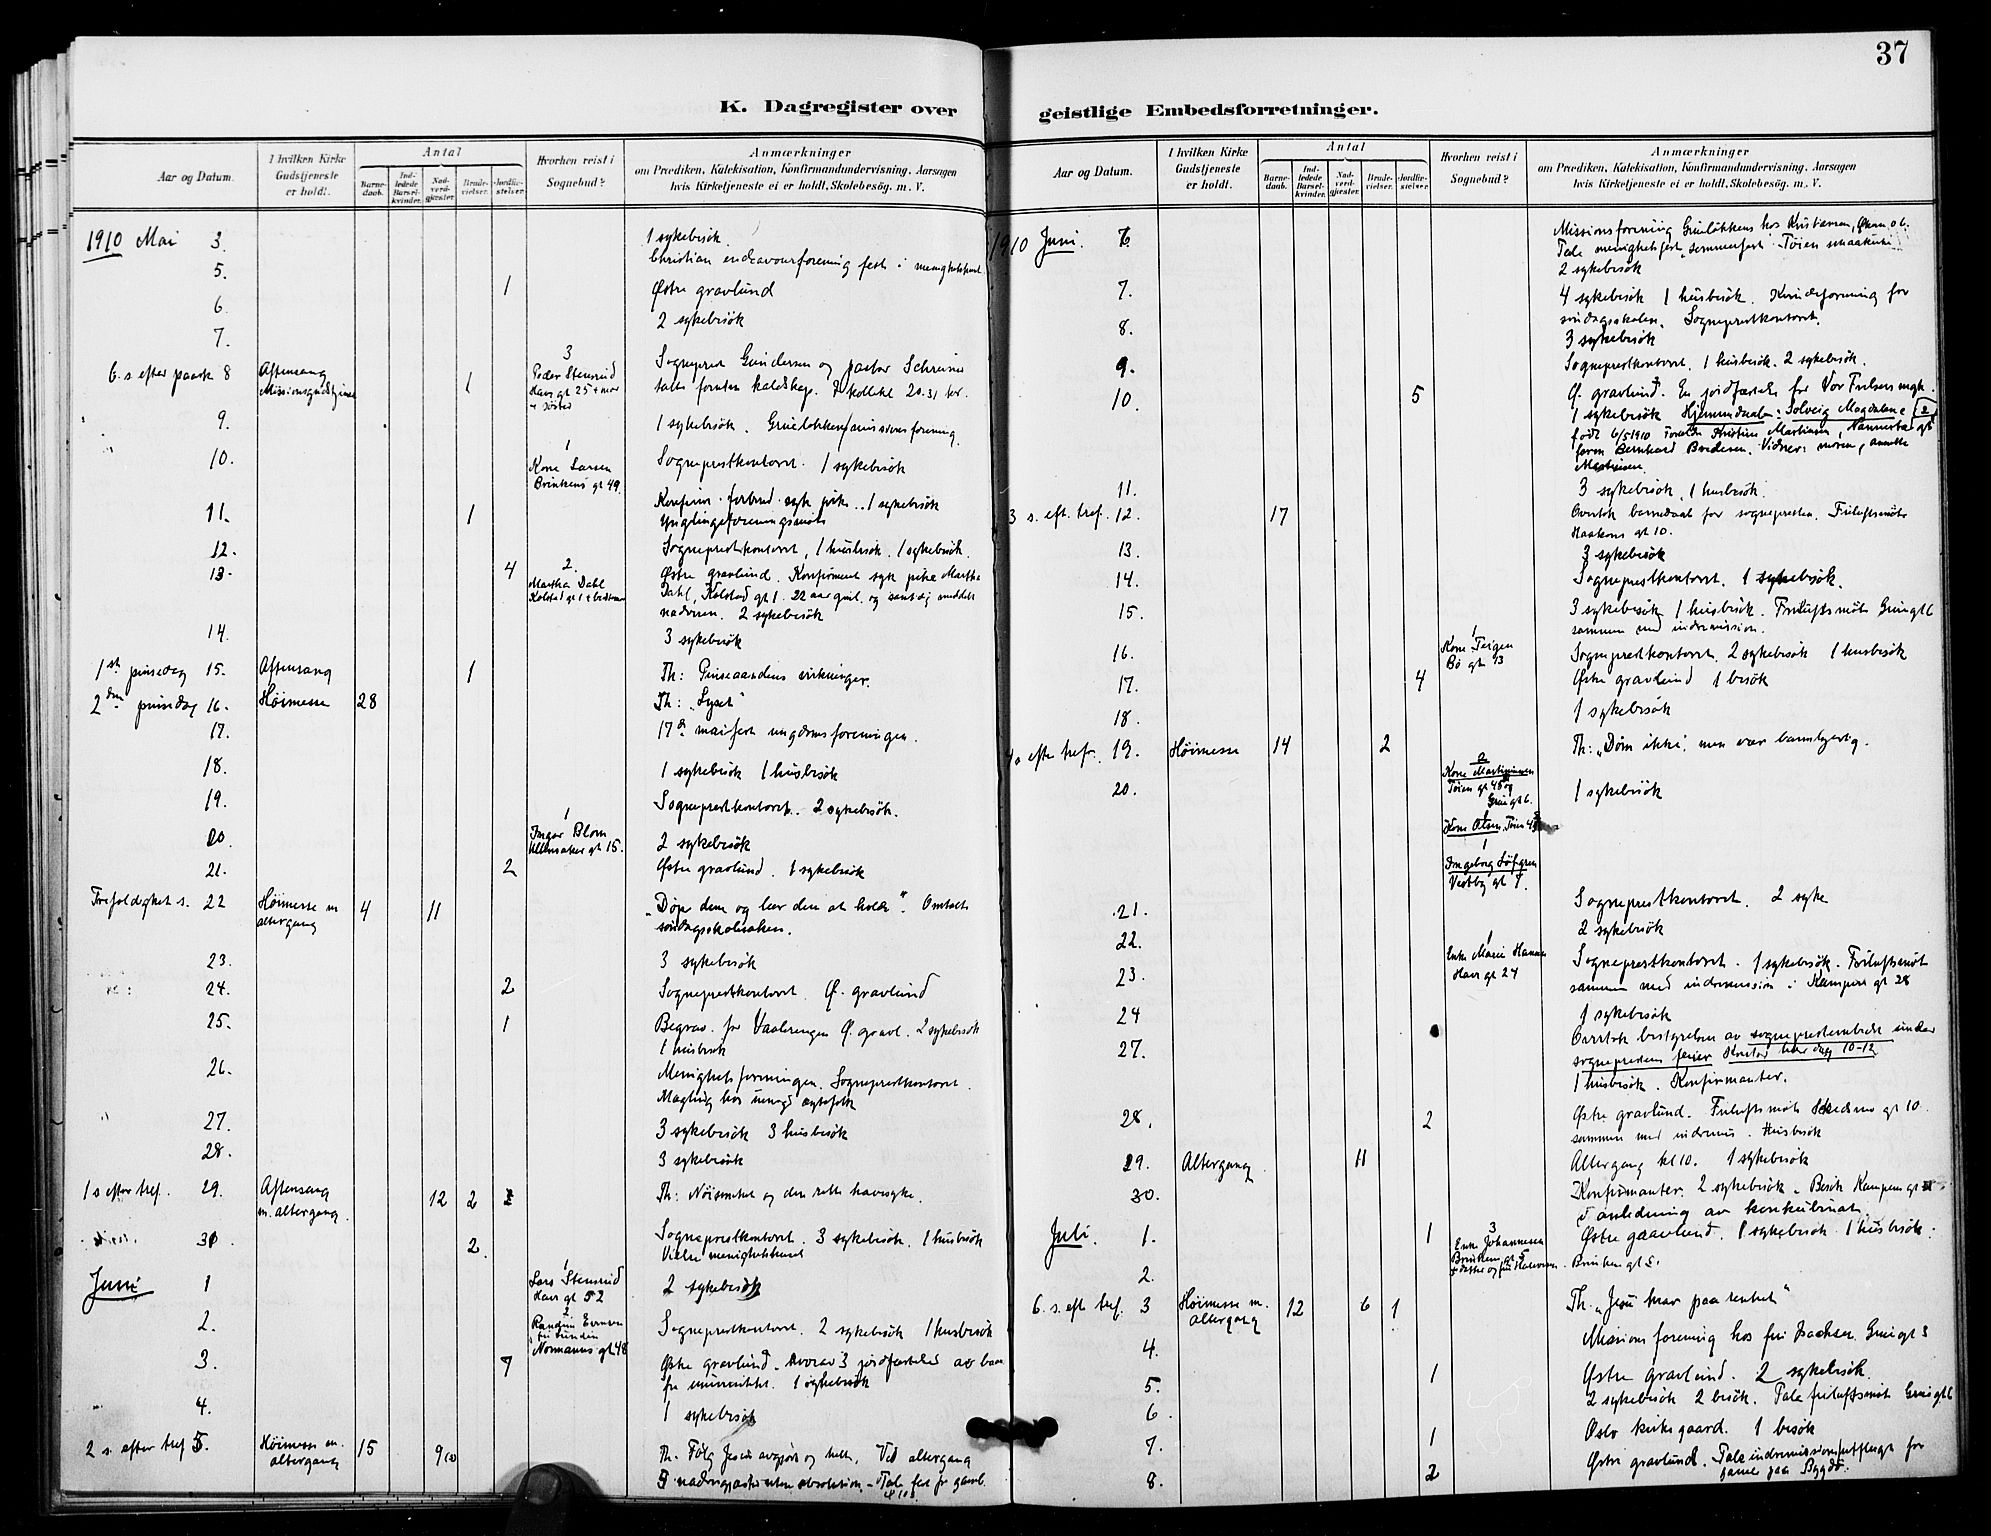 37
K. Dagregister over
geistlige Embedsforretninger.
Aar og Datum.
I hvilken Kirke
Gudstjeneste
er holdt.
Antal
Barne-
daab.
Ind-
ledede
Barsel-
kvinder.
Nad-
verd-
gjæster.
Brude-
vielser.
Jordfæ-
stelser.
Hvorhen reist i
Sognebud?
Anmærkninger
om Prædiken, Katekisation, Konfirmandundervisning, Aarsagen
hvis Kirketjeneste ei er holdt, Skolebesøg, m. V.
1910 Mai 3. 1 sykebesök.
Christian endeavourforening fest i
5. 1 Østre gravlund
6. 2 sykebesök
7.
6. s efter paask 8 Aftensang 1 3 Sogneprest Gundersen og pastor Schreiner
Missionsgudstjeneste Peder Stensrud talte foruten kollekt 20.31 kr.
Havs gt 25 + mor
+ søster
9. 1 sykebesök. missionsforening.
10. 1 Sogneprestkontoret. 1 sykebesök
Kone Larsen
Brinkens gt 49.
11. 1 syk pike. 1 sykebesök
Ynglingeforeningsmöte
12. Sogneprestkontoret, 1 husbesök. 1 sykebesök.
13. 4 2. Østre gravlund. Konfirmert syk pike Martha
Martha Dahl Dahl, Kolstad gt 1. 22 aar gml. og samtidig meddelt
Kolstad gt 1 nadveren. 2 sykebesök
14. 3 sykebesök
1ste pinsedag 15. Aftensang 1 Th: Pinseaandens virkninger.
2den pinsedag 16. Höimesse 28 Th: "Lyset"
17. 17de maifest ungdomsforeningen.
18. 1 sykebesök 1 husbesök
19. Sogneprestkontoret. 2 sykebesök.
20. 1 2 sykebesök
Ingar Blom
Ullensaker gt 15.
21. 2 Østre gravlund. 1 sykebesök
Trefoldighet s. 22 Höimesse m 4 11 "Døp dem og lær dem at holde". Omtalt
altergang söndagsskolesaken.
23. 3 sykebesök
24. 2 Sogneprestkontoret. Ø. gravlund
25. 1 Begrav. for Vaalerengen Ø. gravl. 2 sykebesök
1 husbesök
26. Menighetsforeningen. Sogneprestkontoret.
Mægling hos uenigt ægtefolk
27. 3 sykebesök 3 husbesök
28. 3 sykebesök
1 s efter tref. 29. Aftensang 12 2 Th: Nöisomhet og den rette havesyke.
m. altergang.
30. 2. Sogneprestkontoret. 3 sykebesök. 1 husbesök
Juni 1 1 2 sykebesök
Lars Stensrud
Havs gt 52
2. 2 Sogneprestkontoret. 2 sykebesök 1 husbesök
Normanns gt 48
3. 7 Østre gravlund. Hvorav 3 jordfæstelsed av barn
fra universitet. 1 sykebesök
4. 1 sykebesök
2 s. efter tref 5. Höimesse m. 15 9 Th. Følg Jesus avgjort og helt. Ved altergang
altergang nadvergjæster uten absolution. Tale fest for gamle
Aar og Datum.
I hvilken Kirke
Gudstjeneste
er holdt.
Antal
Barne-
daab.
Ind-
ledede
Barsel-
kvinder.
Nad-
verd-
gjæster.
Brude-
vielser.
Jordfæ-
stelser.
Hvorhen reist i
Sognebud?
Anmærkninger
om Prædiken, Katekisation, Konfirmandundervisning, Aarsagen
hvis Kirketjeneste ei er holdt, Skolebesøg, m. V.
1910 Juni. 6. Missionsforening Grünløkkens hos Kristiansen,
Tale menighetsfest, sommerfest Tøien
2 sykebesök
7. 4 sykebesök 1 husbesök. Kvindeforening for
söndagsskolen. Sogneprestkontoret.
8. 3 sykebesök
9. Sogneprestkontoret. 1 husbesök. 2 sykebesök.
10. 5 Ø. gravlund. En jordfæstelse for Vor Frelsers mgh.
1 sykebesök Hjemmedaab: Solveig Magdalene
født 6/5 1910 Forældre Kristine Martinsen, Hammersta gt
farm Bernhard Bredesen. Vidner: moren, Annette
Martinsen.
11. 3 sykebesök. 1 husbesök.
3 s. eft. tref. 12. 17 Overtok barnedaab for sognepresten. Friluftsmöte
Haakons gt 10.
13. 3 sykebesök
14. Sogneprestkontoret. 1 sykebesök.
15. 3 sykebesök 1 husbesök. Friluftsmöte Grüngt 6
sammen med indremission.
16. 1 Sogneprestkontoret. 2 sykebesök 1 husbesök
Kone Teigen
Bö gt 13
17. 4 Østre gravlund 1 besök
18. 1 sykebesök
4 s efter tref. 19. Höimesse 14 2 Th: "Døm ikke", men vær barmhjertig.
20. 2 1 sykebesök
Kone Martinsen
Töien gt 45 og
Grüngt 6.
1
Kone Olsen, Töien 45
1
Ingeborg Löfgren
Vestby gt 7.
21. Sogneprestkontoret. 2 syke
22. 2 sykebesök
23. 1 Sogneprestkontoret. 1 sykebesök. Friluftsmöt
Enke Marie Hansen sammen med indremission i Kampens gt 28
Havs gt 24
24 1 sykebesök
27. Overtok bestyrelsen av sogneprestembedet under
sogneprestens ferier Kontor hver dag 10-12
1 husbesök. Konfirmanter.
28. 2 Østre gravlund. Friluftsmöte Skedsmo gt 10.
sammen med indremis. Husbesök
29. Altergang 11 Altergang kl 10. 1 sykebesök
30. Konfirmanter. 2 sykebesök. Besök Kampens gt
i anledning av konkubinat.
Juli. 1. 1 3 Østre gravlund. 1 sykebesök. 1 husbesök.
Enke Johannesen
Brinkens gt 5
2. Brinken gt 5.
6. s. eft tref. 3 Höimesse m. 12 6 1 Th. "Jesu krav paa renhet"
altergang
4. Missionsforening hos fru Isachsen. Grüngt 3
5. 1 Østre gravlund. 2 sykebesök.
6. 2 sykebesök 2 besök. Tale friluftsmöte Grüngt 6
7. 1 Oslo kirkegaard. 1 besök
8. 2 Østre gravlund. Tale indremissionsutflugt for
gamle paa Bygdö.